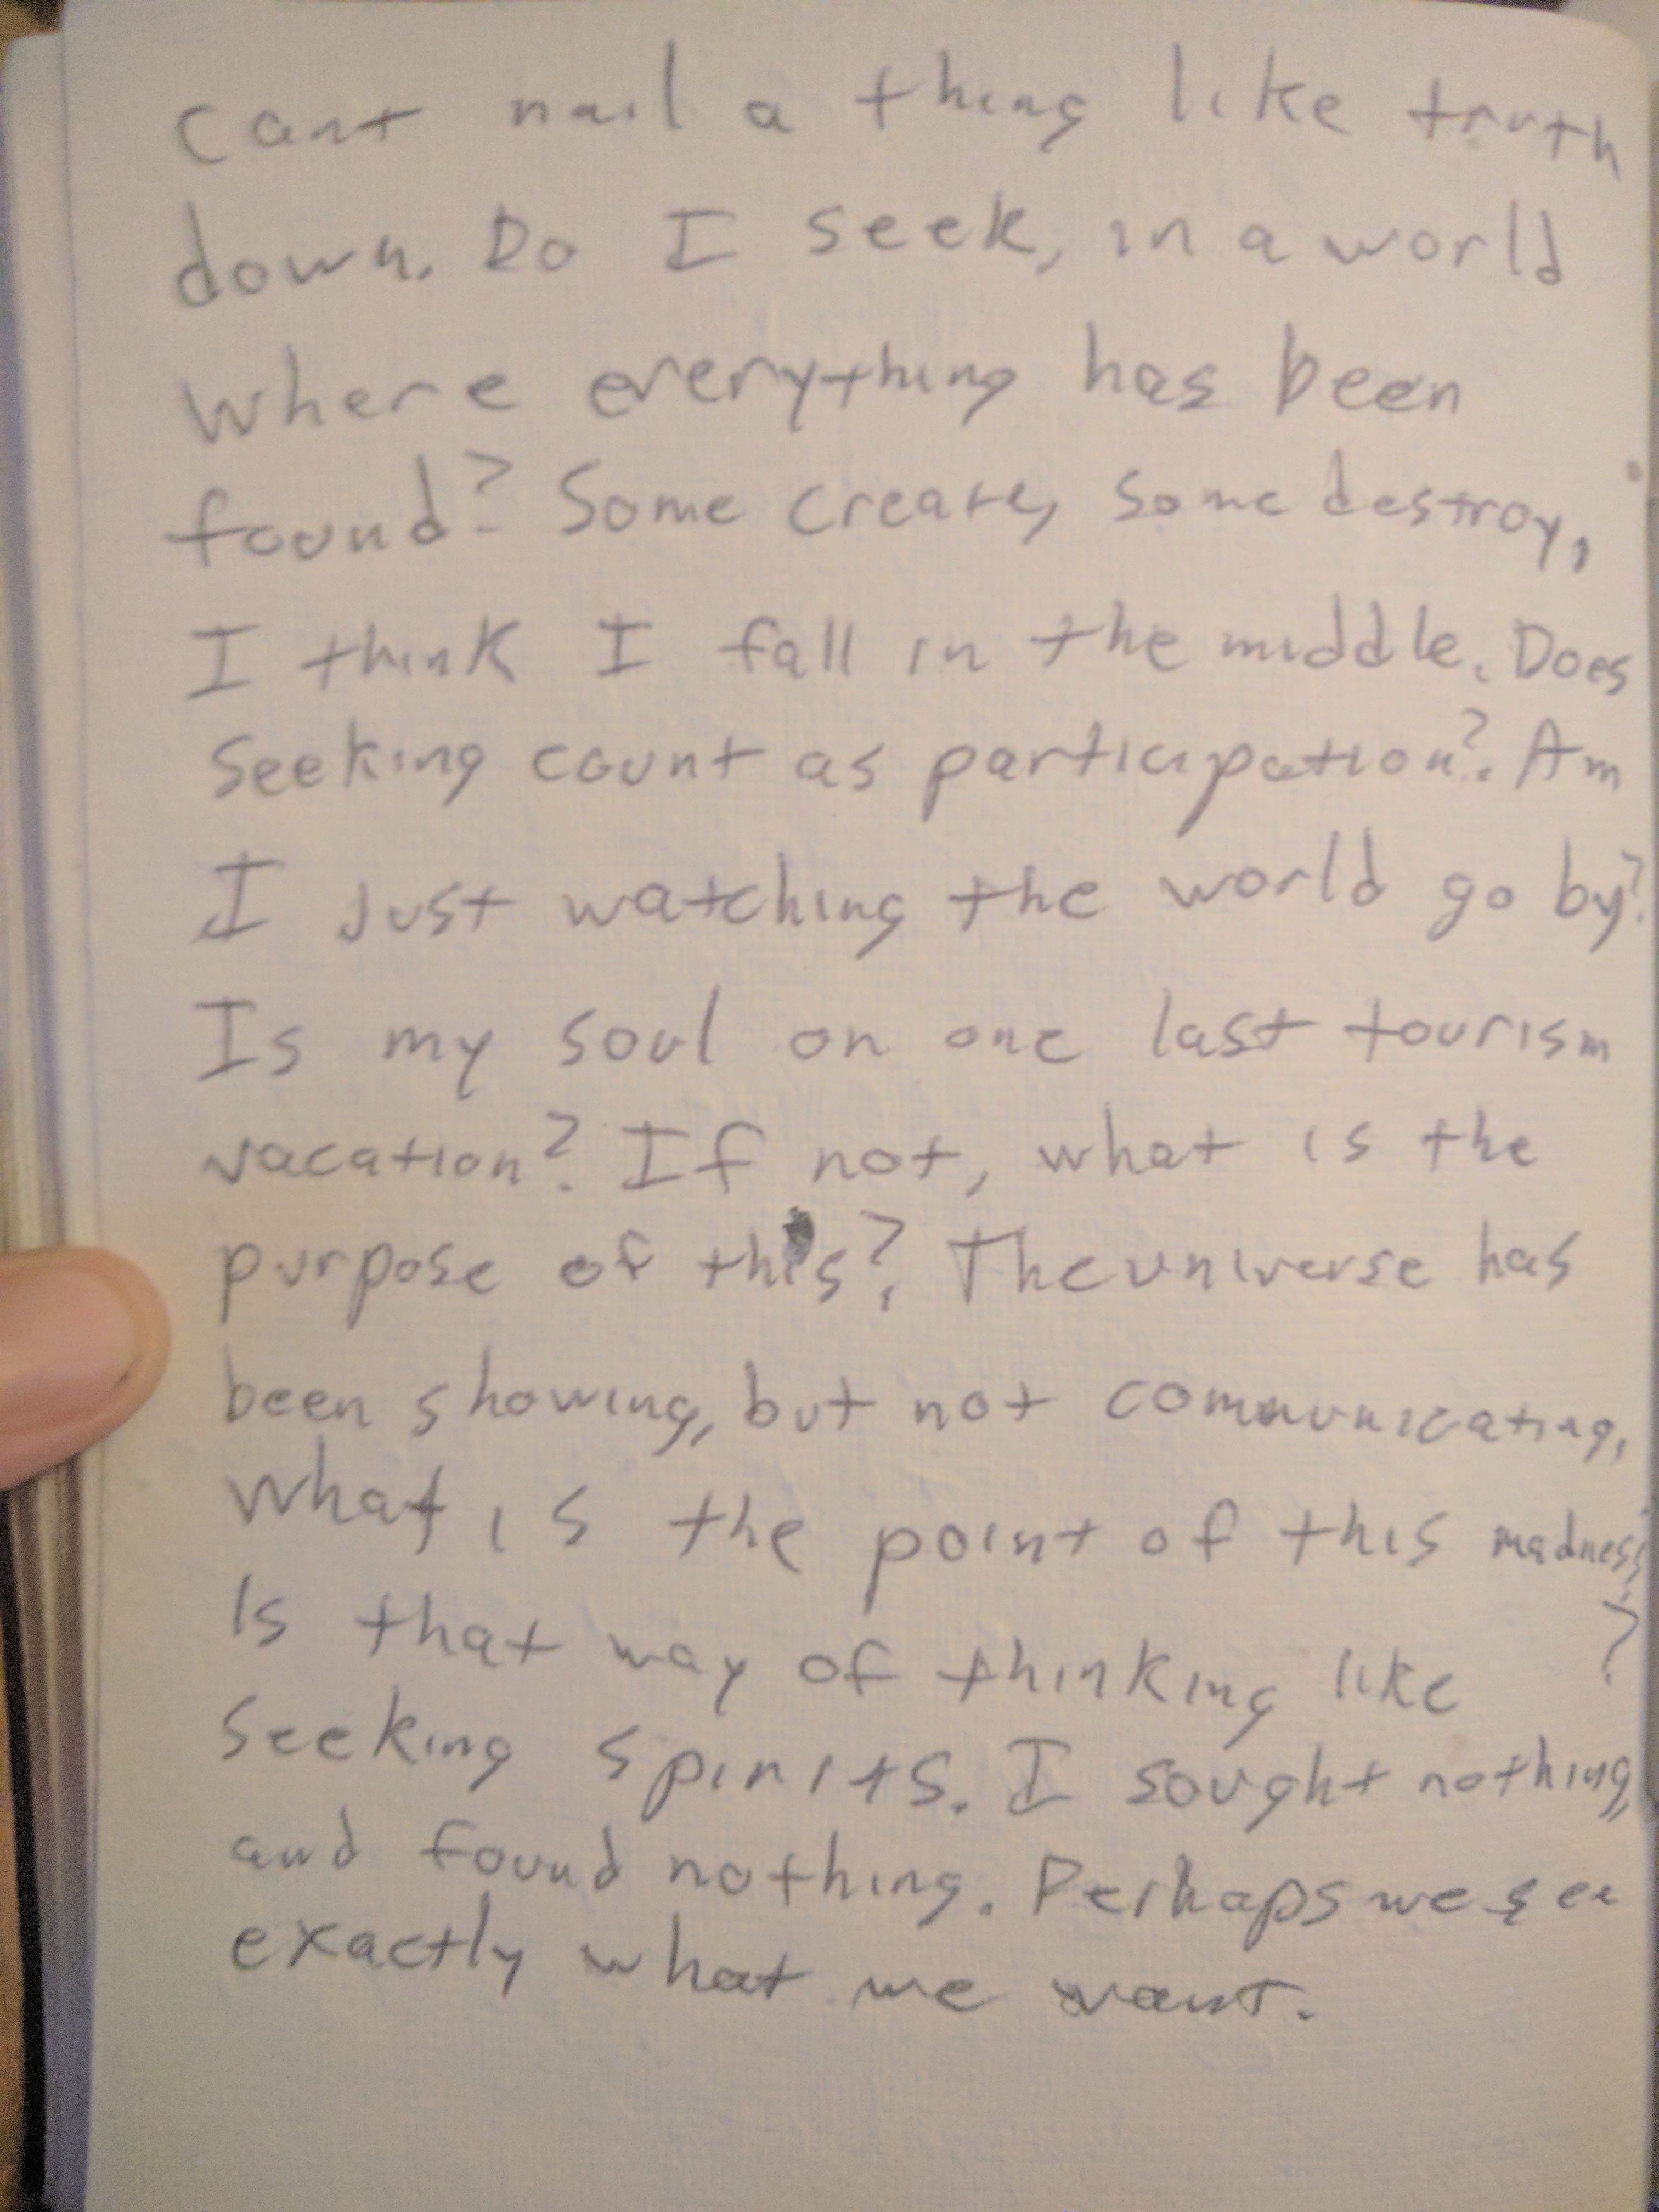 cant nail a thing like truth
down. Do I seek, in a world
where everything has been
found? Some create, some destroy,
I think I fall in the middle. Does
seeking count as participation? Am
I just watching the world go by?
Is my soul on one last tourism
vacation? If not, what is the
purpose of this? The universe has
been showing, but not communicating,
what is the point of this madness?
Is that way of thinking like
seeking spirits. I sought nothing,
and found nothing. Perhaps we see
exactly what we want.